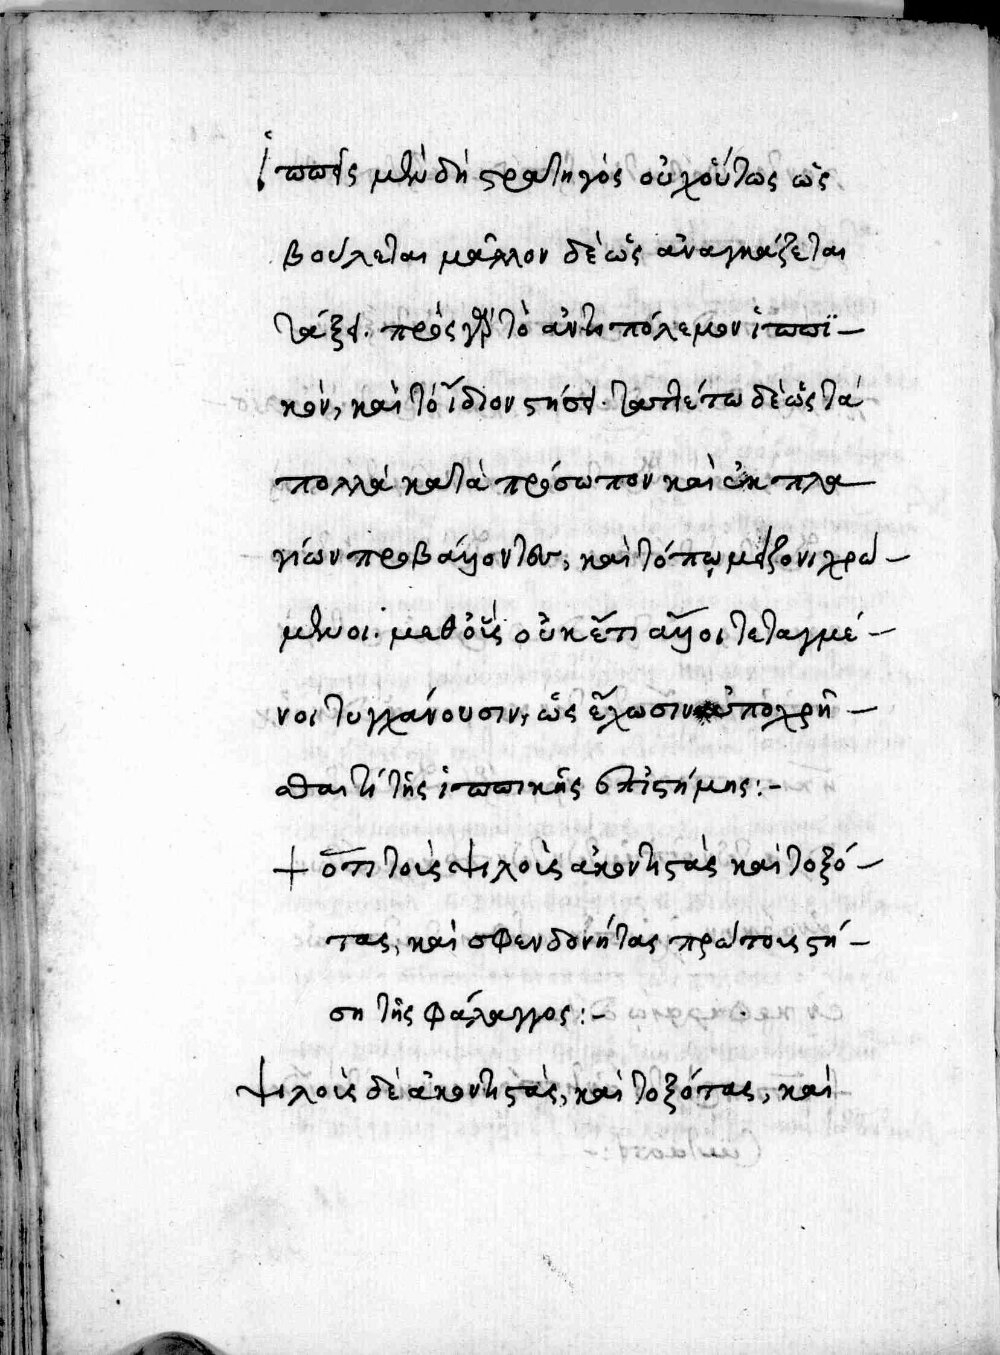 ἱππεῖς μὲν δὴ στρατηγὸς οὐχ οὕτως ὡς
βούλεται μᾶλλον δὲ ὡς ἀναγκάζεται
τάξει. πρὸς γὰρ τὸ ἀντιπόλεμον ἱππϊ-
κὸν, καὶ τὸ ἴδιον στήσει. ταττέτω δὲ ὡς τὰ
πολλὰ κατὰ πρόσωπον καὶ ἐκ πλα
γίων προβάλλοντας, καὶ τόπῳ μείζονι χρώ-
μενοι. μεθ οἷς οὐκέτι ἄλλοι τεταγμέ-
νοι τυγχάνουσιν, ὡς ἔχωσιν ἀποχρῆ-
σθαι τί τῆς ἱππικῆς ἐπιστήμης:-
ὅτι τοὺς ψιλοὺς ἀκοντιστὰς καὶ τοξό-
τας, καὶ σφενδονήτας πρώτους στή-
ση τῆς φάλαγγος:-
ψιλοὺς δὲ ἀκοντιστὰς, καὶ τοξότας, καὶ